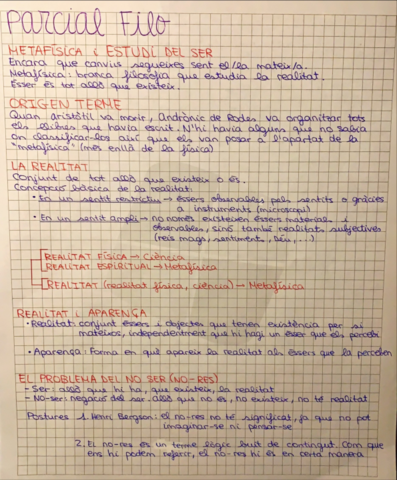 PARCIAL FILO
METAFÍSICA i ESTUDI DEL SER
Encara que canvius segueixes sent el/la mateix/a.
Metafísica: branca filosofia que estudia la realitat.
Ésser és tot allò que existeix.
ORIGEN TERME
Quan aristòtil va morir, Andrònic de Rodes va organitzar tots
els llibres que havia escrit. N'hi havia alguns que no sabia
on classificar-los així que els van posar a l'apartat de la
"metafísica" (més enllà de la física)
LA REALITAT
Conjunt de tot allò que existeix o és.
Concepció bàsica de la realitat:
• En un sentit restrictiu → éssers observables pels sentits o gràcies
a instruments (microscopi)
• En un sentit ampli → no només existeixen éssers materials i
observables, sinó també realitats subjectives
(reis mags, sentiments, Déu,...)
REALITAT FÍSICA → Ciència
REALITAT ESPIRITUAL → Metafísica
REALITAT (realitat física, ciència) → Metafísica
REALITAT i APARENÇA
• Realitat: conjunt éssers i objectes que tenen existència per si
mateixos, independentment que hi hagi un ésser que els percebi
• Aparença: Forma en què apareix la realitat als éssers que la perceben
EL PROBLEMA DEL NO SER (NO-RES)
- Ser: allò que hi ha, que existeix, la realitat
- No-ser: negació del ser. allò que no és, no existeix, no té realitat
Postures 1. Henri Bergson: el no-res no té significat, ja que no pot
imaginar-se ni pensar-se
2. El no-res és un terme lògic buit de contingut. Com que
ens hi podem referir, el no-res hi és en certa manera